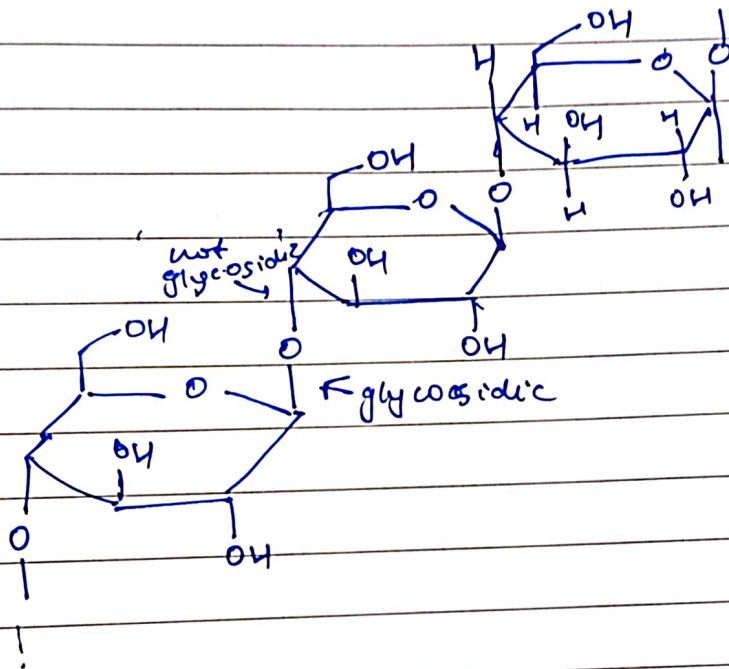 OH
H
O
O
H
OH
H
OH
O
H
OH
O
not
glycosidic
OH
OH
O
OH
O
glycosidic
OH
O
OH